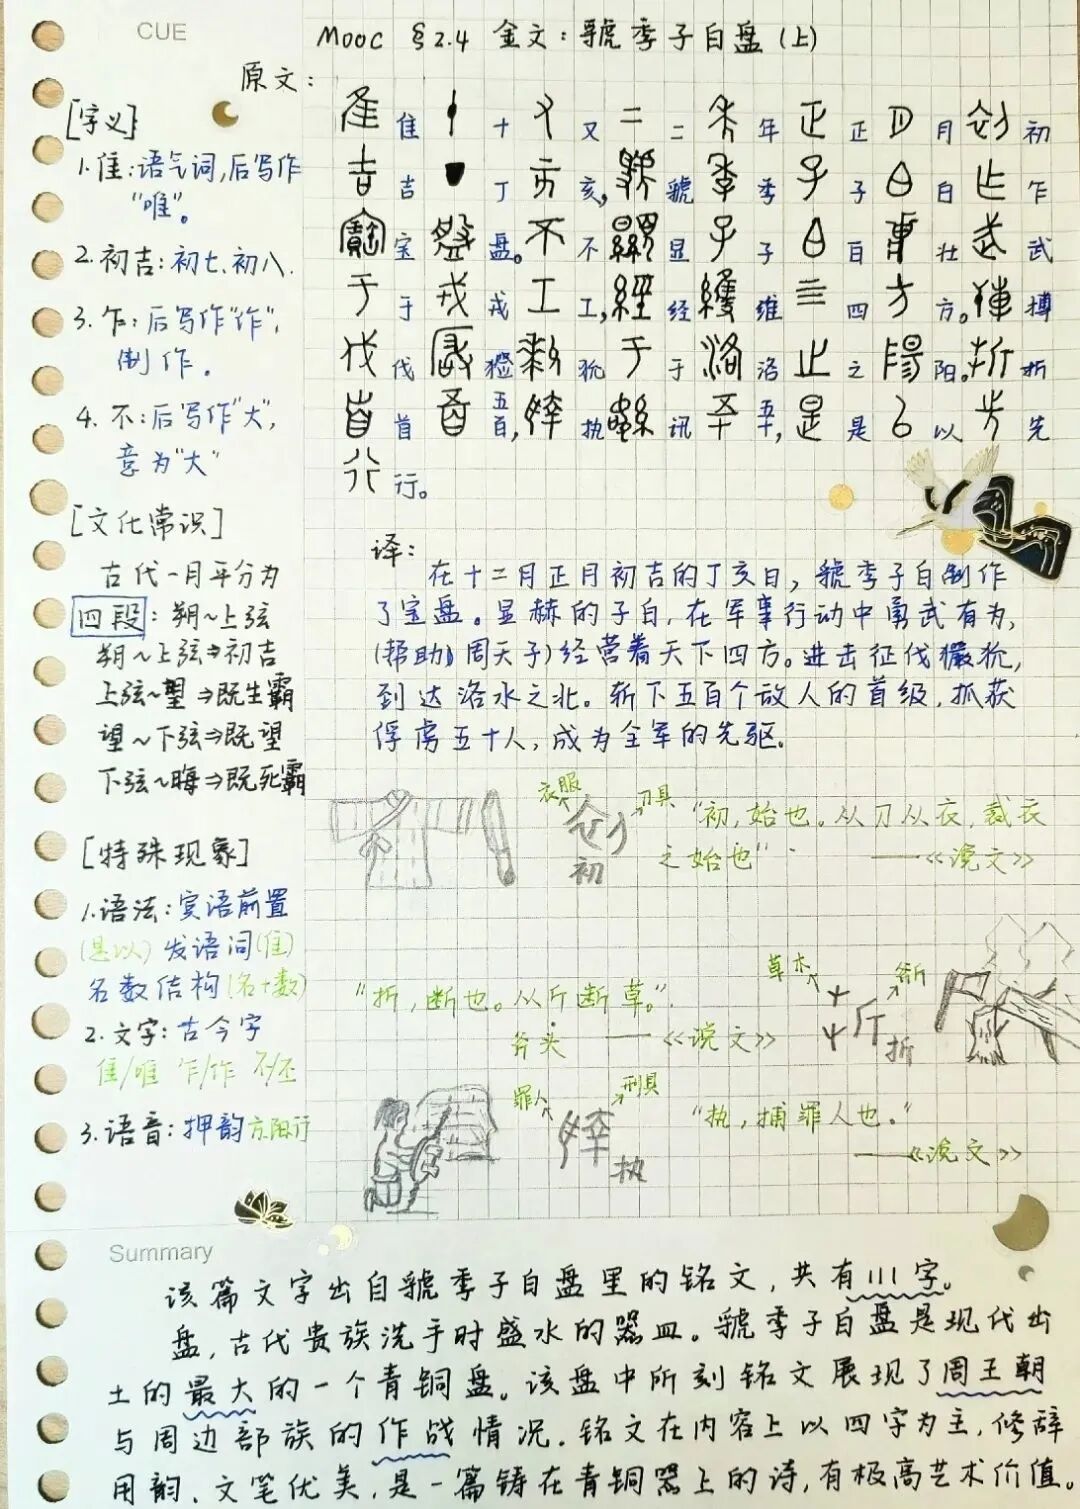 CUE
Mooc §2.4 金文：虢季子白盘（上）
原文：
隹十又二年正月初
吉丁亥，虢季子白乍
宝盘。不显子白壮武
于戎工，经维四方。搏
伐玁狁于洛之阳。折
首五百，执讯五十，是以先
行。
[字义]
1.隹：语气词，后写作
"唯"。
2.初吉：初七、初八.
3.乍：后写作"作"，
制作.
4.不：后写作"大"，
意为"大"
[文化常识]
古代一月平分为
四段：朔～上弦
朔～上弦⇒初吉
上弦～望⇒既生霸
望～下弦⇒既望
下弦～晦⇒既死霸
[特殊现象]
1.语法：宾语前置
(是以) 发语词(隹)
名数结构(名+数)
2.文字：古今字
隹/唯 乍/作 不/丕
3.语音：押韵 方阳行
译：
在十二月正月初吉的丁亥日，虢季子白制作
了宝盘。显赫的子白，在军事行动中勇武有为，
(帮助周天子)经营着天下四方。进击征伐玁狁，
到达洛水之北。斩下五百个敌人的首级，抓获
俘虏五十人，成为全军的先驱.
衣服 刀具
初
"初，始也。从刀从衣，裁衣
之始也"
——《说文》
草木
折
"折，断也。从斤断草。"
斧头 ——《说文》
罪人 刑具
执
"执，捕罪人也."
——《说文》
Summary
该篇文字出自虢季子白盘里的铭文，共有111字。
盘，古代贵族洗手时盛水的器皿。虢季子白盘是现代出
土的最大的一个青铜盘。该盘中所刻铭文展现了周王朝
与周边部族的作战情况.铭文在内容上以四字为主，修辞
用韵、文笔优美，是一篇铸在青铜器上的诗，有极高艺术价值。